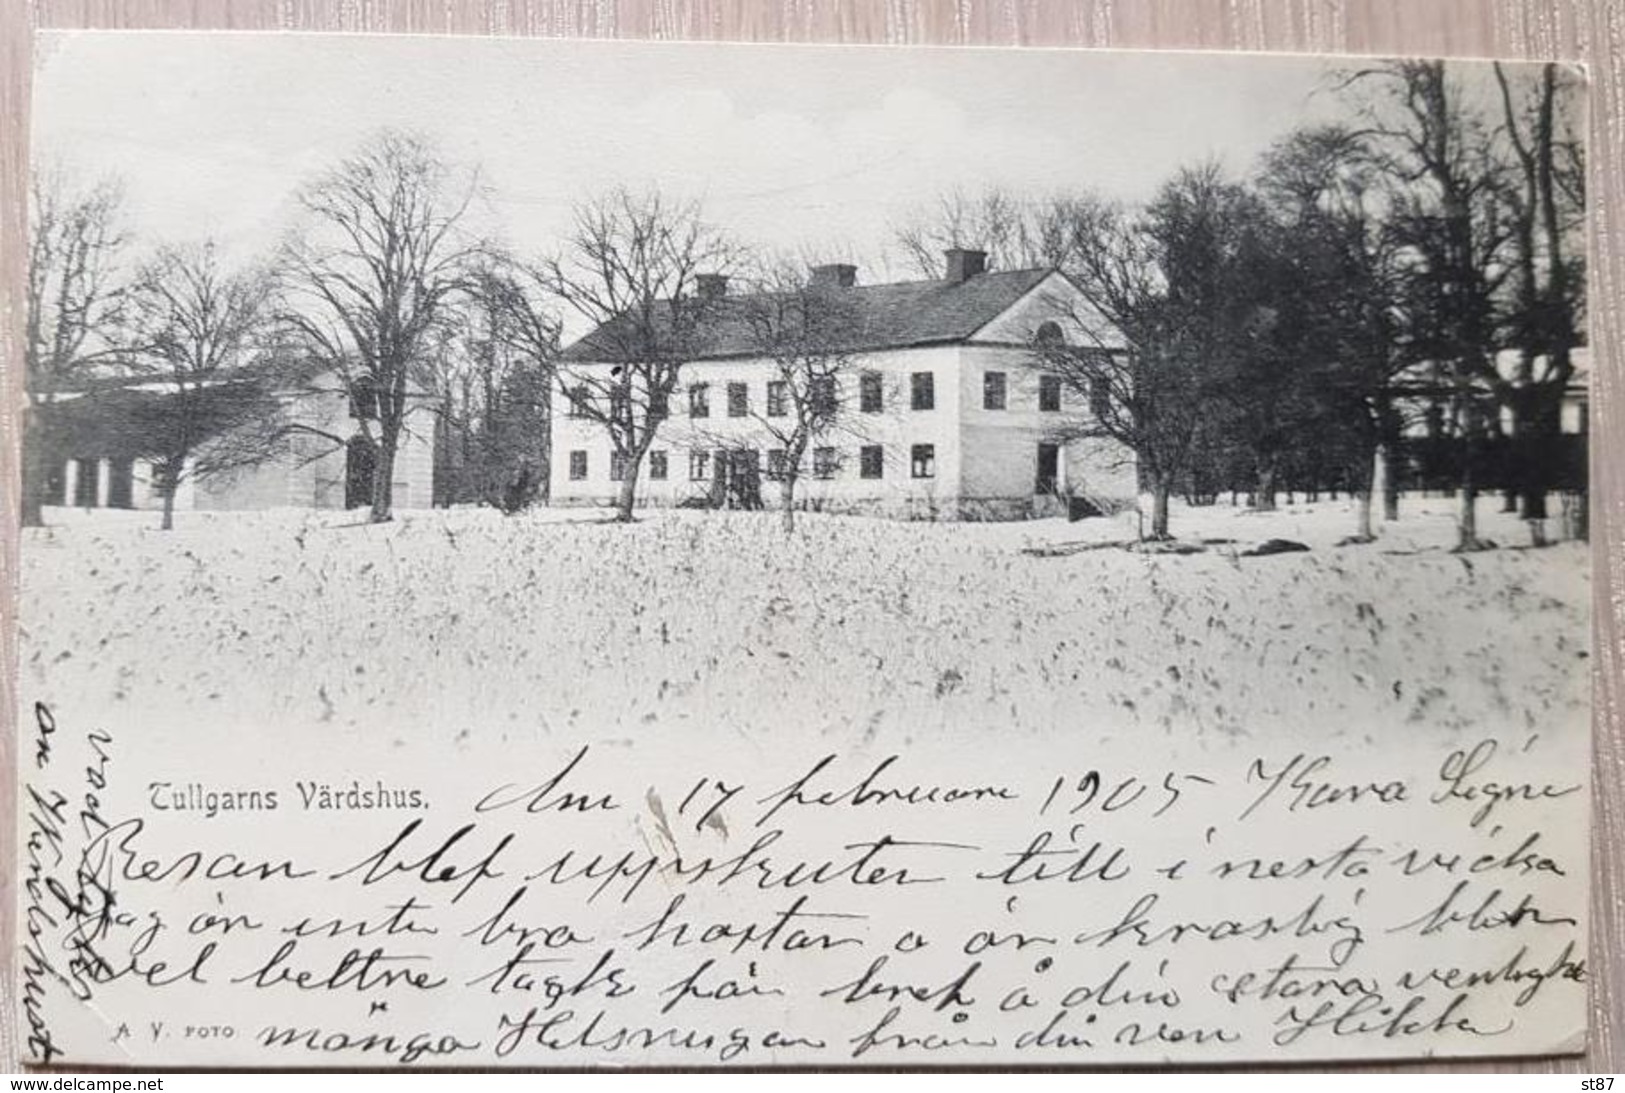 Tullgarns Värdshus. den 17 februari 1905 Kära Signe
Resan blef uppskuten till i nesta vicka
jag är inte bra hostar o är kraslig blir
vel bettre takk för bref å din stora venlighe
A V. FOTO. många Helsningar från din ven Hikka
vad
om Vindshust
www.delcampe.net
st87